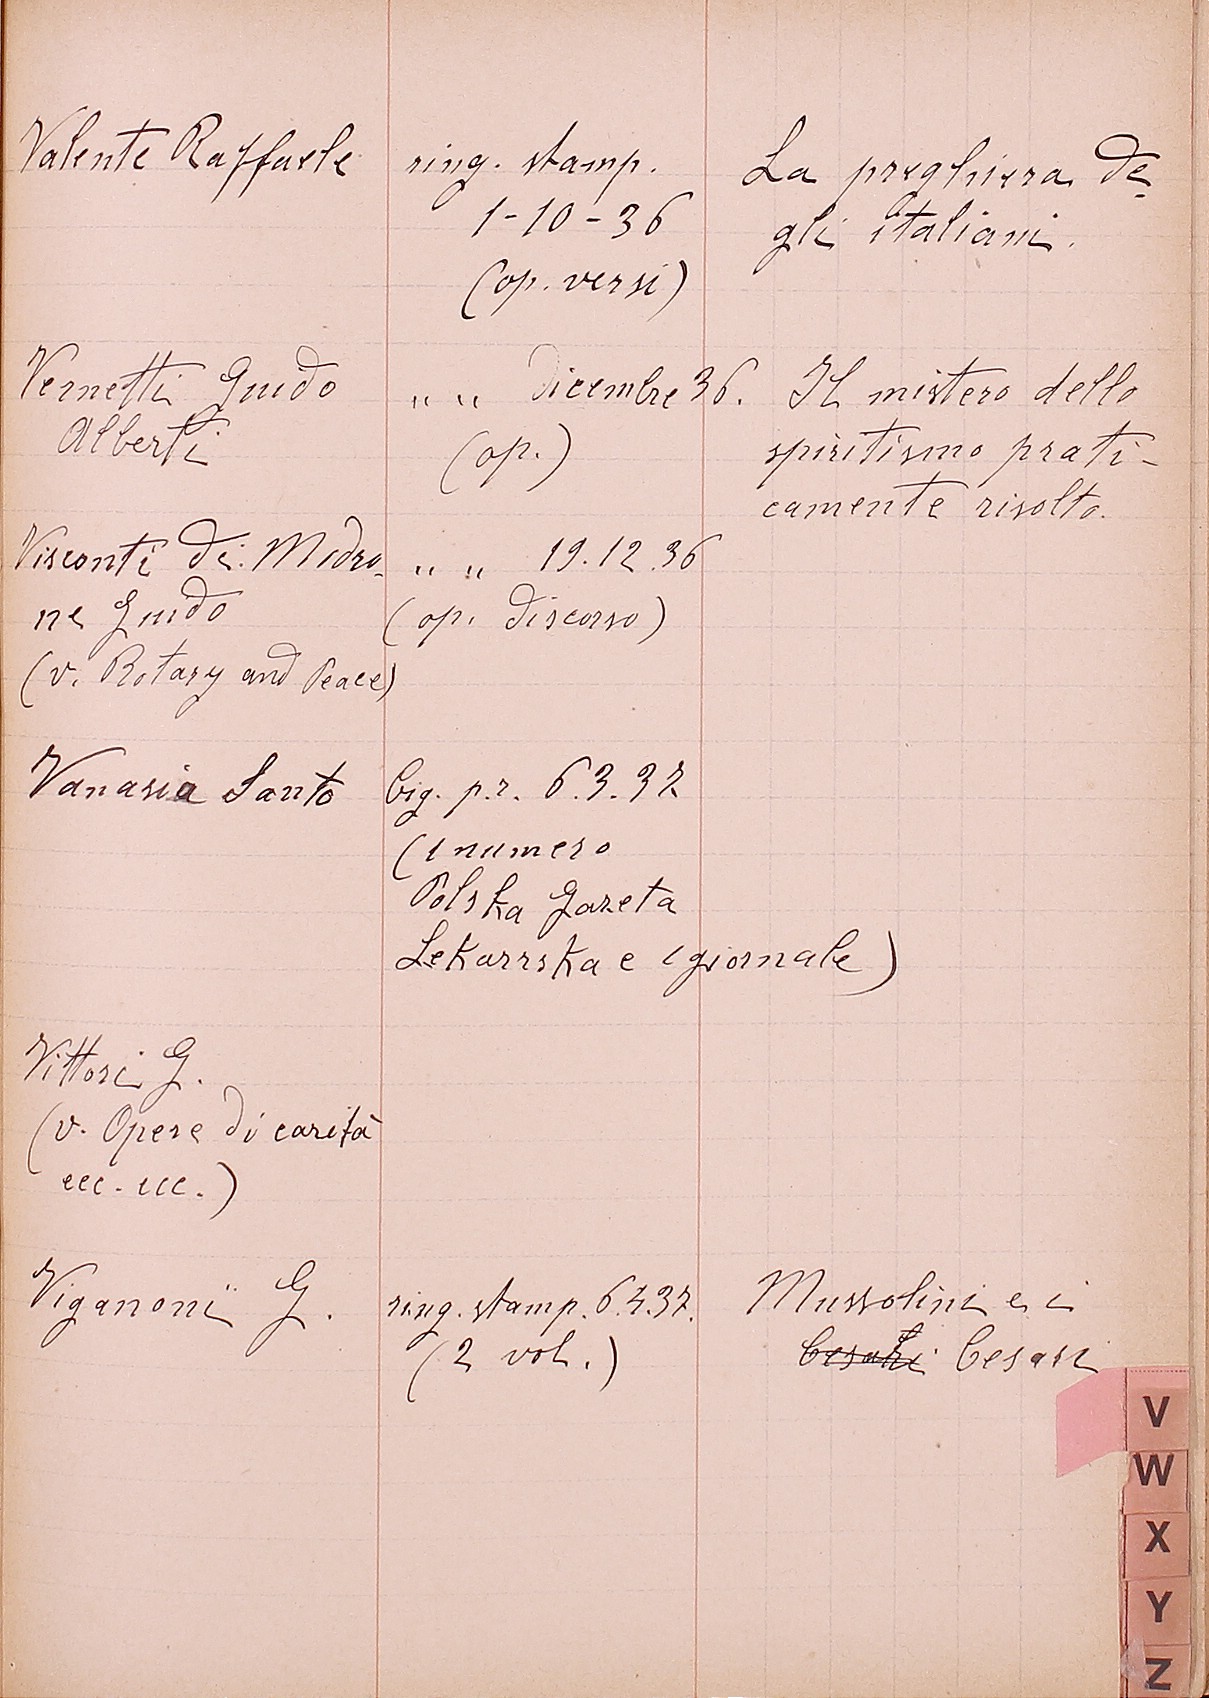 Valente Raffaele ring. stamp. La preghiera de-
1-10-36 gli italiani.
(op. versi)
Vernetti Guido " " dicembre 36. Il mistero dello
Alberti (op.) spiritismo prati-
camente risolto.
Visconti di Modro- " " 19.12.36
ne Guido (op. discorso)
(v. Rotary and Peace)
Vanasia Santo big. p.r. 6.3.37
(1 numero
Polska Gazeta
Lekarrska e 1 giornale)
Vittori G.
(v. Opere di carità
ecc. ecc.)
Viganoni G. ring. stamp. 6.4.37. Mussolini e i
(2 vol.) Cesari
V
W
X
Y
Z